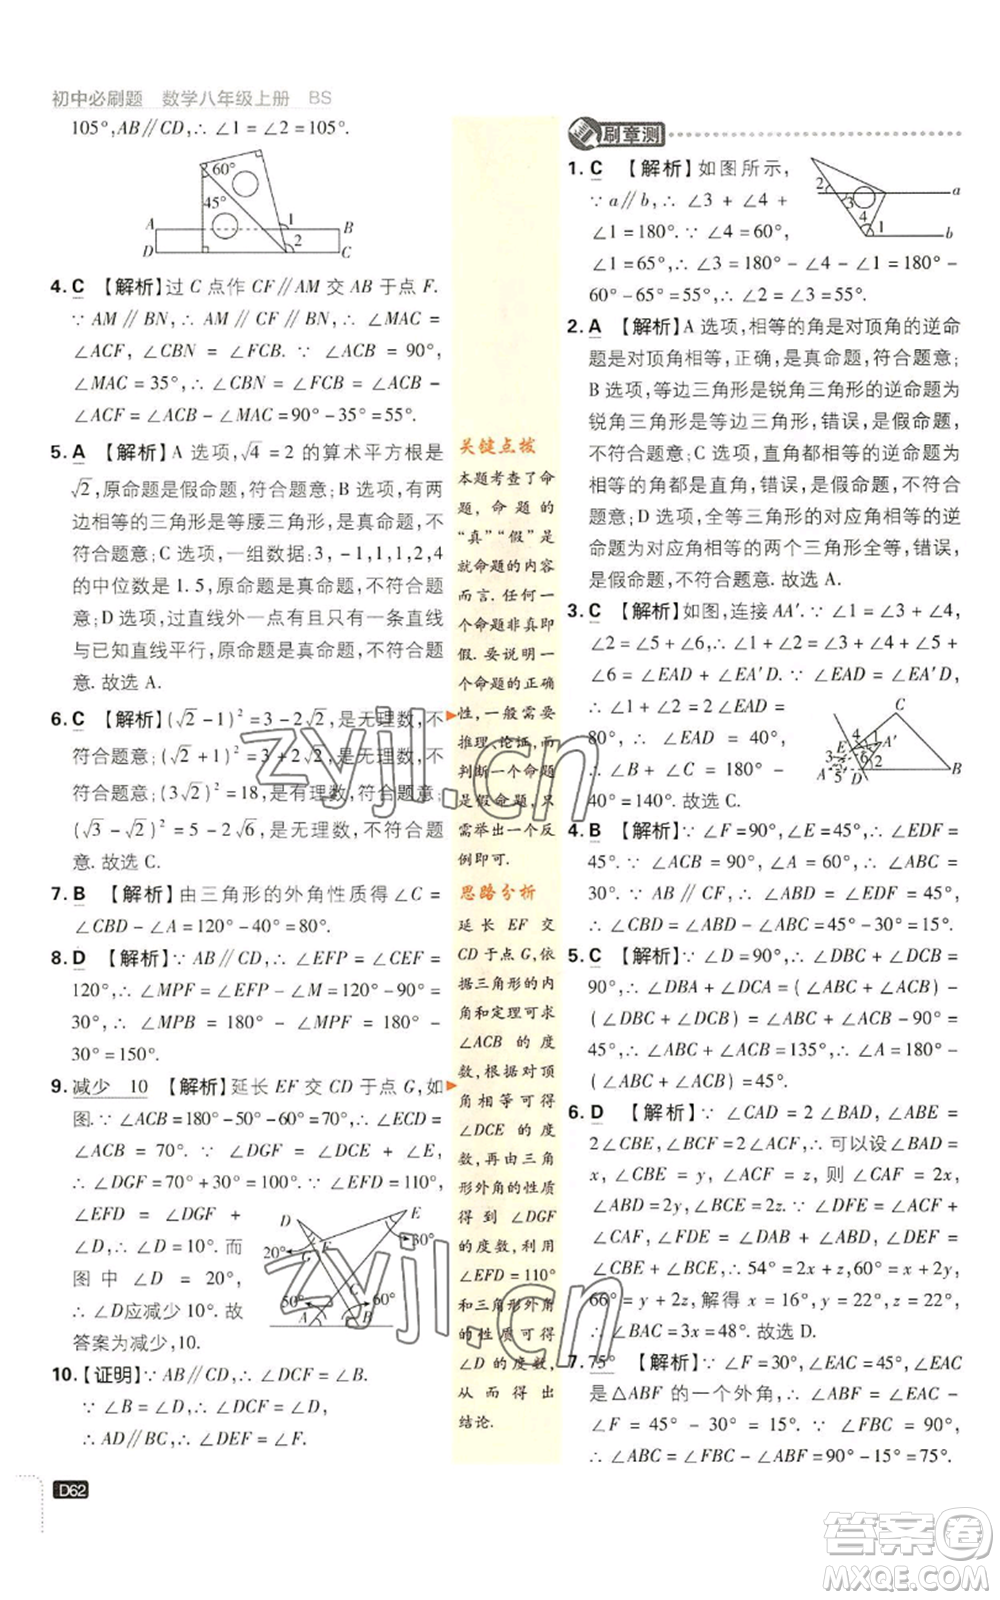 初中必刷题 数学八年级上册 BS
105°,AB∥CD,∴ ∠1 = ∠2 = 105°.
60°
45°
A
B
D
C
1
2
4. C 【解析】过 C 点作 CF∥AM 交 AB 于点 F.
∵ AM ∥ BN,∴ AM ∥ CF ∥ BN,∴ ∠MAC =
∠ACF, ∠CBN = ∠FCB. ∵ ∠ACB = 90°,
∠MAC = 35°,∴ ∠CBN = ∠FCB = ∠ACB −
∠ACF = ∠ACB − ∠MAC = 90° − 35° = 55°.
5. A 【解析】A 选项,√4 = 2 的算术平方根是
√2,原命题是假命题,符合题意;B 选项,有两
边相等的三角形是等腰三角形,是真命题,不
符合题意;C 选项,一组数据:3,−1,1,1,2,4
的中位数是 1. 5,原命题是真命题,不符合题
意;D 选项,过直线外一点有且只有一条直线
与已知直线平行,原命题是真命题,不符合题
意. 故选 A.
6. C 【解析】(√2 − 1)² = 3 − 2√2,是无理数,不
符合题意;(√2 + 1)² = 3 + 2√2,是无理数,不
符合题意;(3√2)² = 18,是有理数,符合题意;
(√3 − √2)² = 5 − 2√6,是无理数,不符合题
意. 故选 C.
7. B 【解析】由三角形的外角性质得 ∠C =
∠CBD − ∠A = 120° − 40° = 80°.
8. D 【解析】∵ AB∥CD,∴ ∠EFP = ∠CEF =
120°,∴ ∠MPF = ∠EFP − ∠M = 120° − 90° =
30°,∴ ∠MPB = 180° − ∠MPF = 180° −
30° = 150°.
9. 减少 10 【解析】延长 EF 交 CD 于点 G,如
图. ∵ ∠ACB = 180° − 50° − 60° = 70°,∴ ∠ECD =
∠ACB = 70°. ∵ ∠DGF = ∠DCE + ∠E,
∴ ∠DGF = 70° + 30° = 100°. ∵ ∠EFD = 110°,
∠EFD = ∠DGF +
∠D,∴ ∠D = 10°. 而
图中 ∠D = 20°,
∴ ∠D应减少 10°. 故
答案为减少,10.
D
E
F
G
20°
30°
C
50°
60°
A
B
10. 【证明】∵ AB∥CD,∴ ∠DCF = ∠B.
∵ ∠B = ∠D,∴ ∠DCF = ∠D,
∴ AD∥BC,∴ ∠DEF = ∠F.
D62
关键点拨
本题考查了命
题, 命题的
“真”“假”是
就命题的内容
而言. 任何一
个命题非真即
假. 要说明一
个命题的正确
性,一般需要
推理、论证,而
判断一个命题
是假命题,只
需举出一个反
例即可.
思路分析
延长 EF 交
CD 于点 G,依
据三角形的内
角和定理可求
∠ACB 的度
数,根据对顶
角相等可得
∠DCE 的度
数,再由三角
形外角的性质
得到 ∠DGF
的度数,利用
∠EFD = 110°
和三角形外角
的性质可得
∠D 的度数,
从而得出
结论.
刷章测
1. C 【解析】如图所示,
∵ a∥b,∴ ∠3 + ∠4 +
∠1 = 180°. ∵ ∠3 =
∠2 = 65°, ∠4 = 60°,
∠1 + 65° + 60° = 180°,∴ ∠1 = 180° −
60° − 65° = 55°,∴ ∠1 = 55°.
2
3
4
1
a
b
2. A 【解析】A 选项,相等的角是对顶角的逆命
题是对顶角相等,正确,是真命题,符合题意;
B 选项,等边三角形是锐角三角形的逆命题为
锐角三角形是等边三角形,错误,是假命题,
不符合题意;C 选项,直角都相等的逆命题为
相等的角都是直角,错误,是假命题,不符合
题意;D 选项,全等三角形的对应角相等的逆
命题为对应角相等的两个三角形全等,错误,
是假命题,不符合题意. 故选 A.
3. C 【解析】如图,连接 AA′. ∵ ∠1 = ∠3 + ∠4,
∠2 = ∠5 + ∠6,∴ ∠1 + ∠2 = ∠3 + ∠4 + ∠5 +
∠6 = ∠EAD + ∠EA′D. ∵ ∠EAD = ∠EA′D,
∴ ∠1 + ∠2 = 2∠EAD =
80°,∴ ∠EAD = 40°,
∴ ∠B + ∠C = 180° −
40° = 140°. 故选 C.
C
A′
E
4
1
3
5
6
2
A
D
B
4. B 【解析】∵ ∠F = 90°,∠E = 45°,∴ ∠EDF =
45°. ∵ ∠ACB = 90°, ∠A = 60°,∴ ∠ABC =
30°. ∵ AB ∥ CF,∴ ∠ABD = ∠EDF = 45°,
∴ ∠DBC = ∠ABD − ∠ABC = 45° − 30° = 15°.
5. C 【解析】∵ ∠D = 90°,∴ ∠DBC + ∠DCB =
90°,∴ ∠DBA + ∠DCA = ( ∠ABC + ∠ACB ) −
( ∠DBC + ∠DCB ) = ∠ABC + ∠ACB − 90° =
45°,∴ ∠ABC + ∠ACB = 135°,∴ ∠A = 180° −
( ∠ABC + ∠ACB ) = 45°.
6. D 【解析】∵ ∠CAD = 2 ∠BAD, ∠ABE =
2∠CBE,∠BCF = 2∠ACF,∴ 可以设∠BAD =
x, ∠CBE = y, ∠ACF = z, 则 ∠CAF = 2x,
∠ABD = 2y, ∠BCE = 2z. ∵ ∠DFE = ∠ACF +
∠CAF, ∠FDE = ∠BAD + ∠ABD, ∠FED =
∠BCE + ∠CBE,∴ 54° = 2x + z, 60° = x + 2y,
66° = y + 2z, 解得 x = 16°, y = 22°, z = 22°,
∴ ∠BAC = 3x = 48°. 故选 D.
7. 75° 【解析】∵ ∠F = 30°,∠EAC = 45°,∠EAC
是△ABF 的一个外角,∴ ∠ABF = ∠EAC −
∠F = 45° − 30° = 15°. ∵ ∠FBC = 90°,
∴ ∠ABC = ∠FBC − ∠ABF = 90° − 15° = 75°.
zyjl.cn
zyjl.cn
答案卷
MXQE.COM